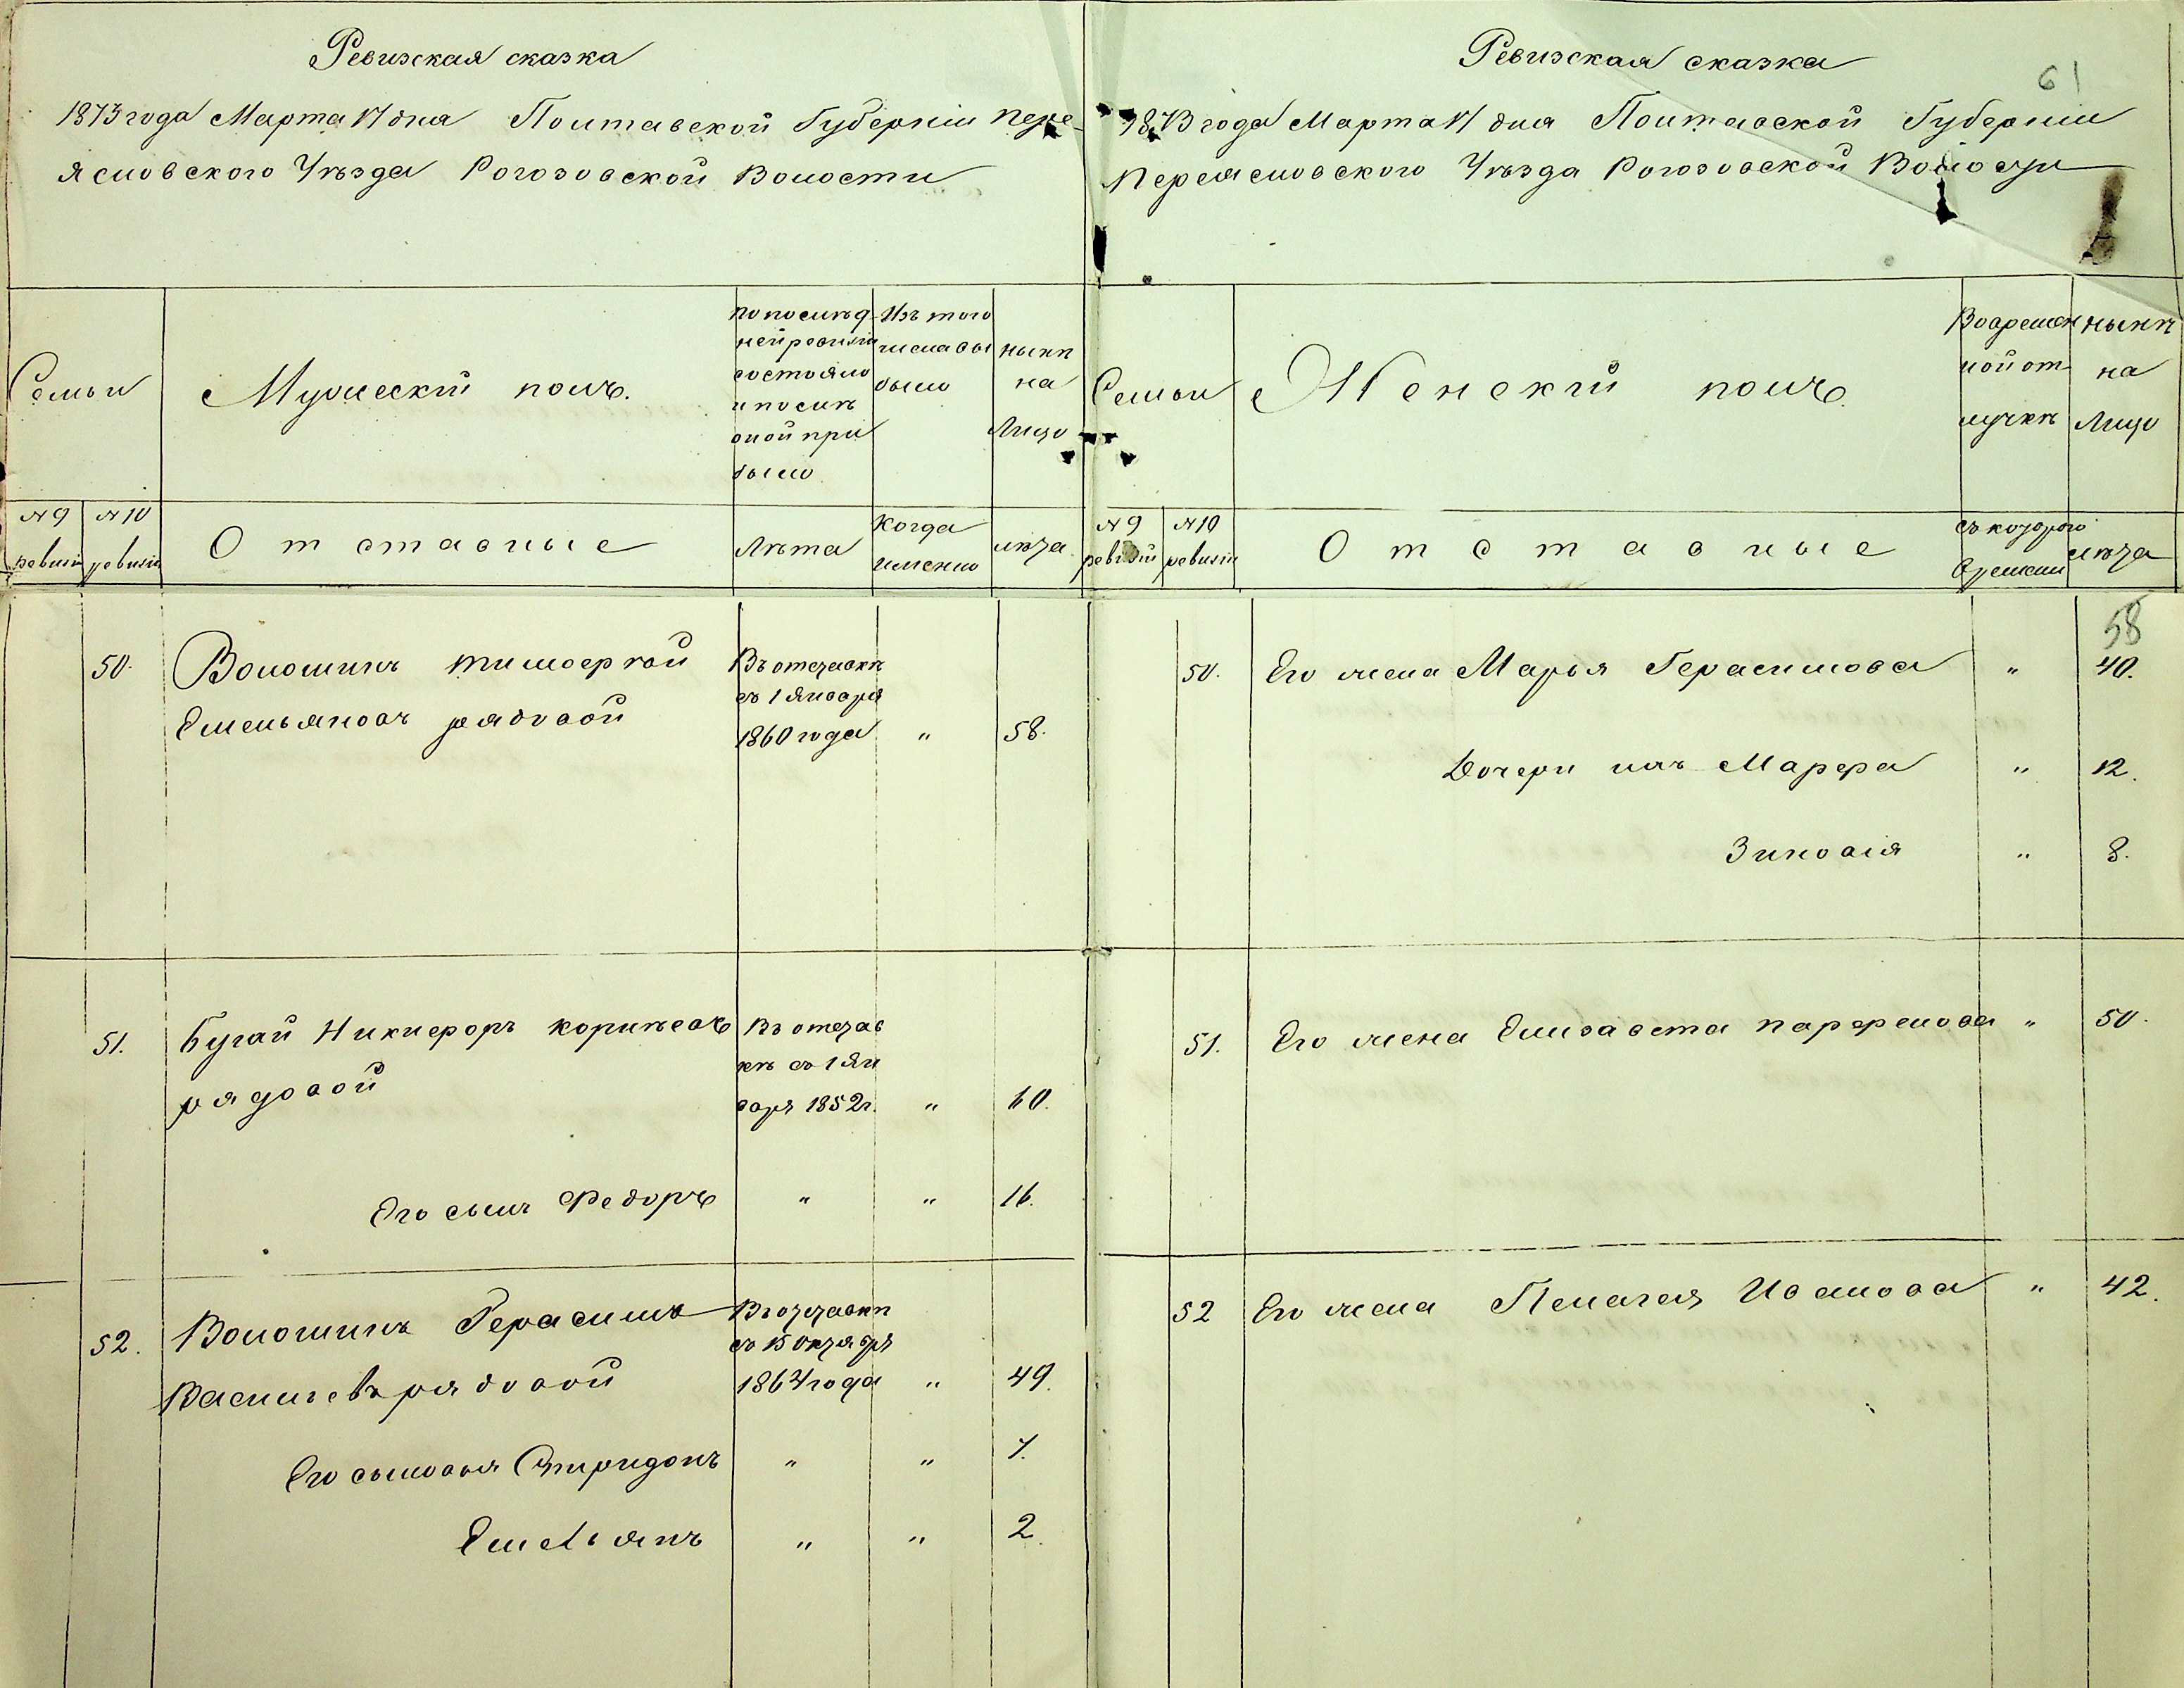 Ревизская сказка
1873 года Марта 17 дня Полтавской Губерніи Пере-
яславского Уѣзда Рогозовской Волости
Семьи
Мужескій полъ.
по послѣд
ней ревизіи
состояло
и послѣ
оной при
было
Изъ того
числа вы
было
нынѣ
на
Лицо
№ 9
ревизіи
№ 10
ревизіи
Отставные
Лѣта
Когда
именно
лѣта
50.
Волошинъ Тимофей
Емельяновъ рядовой
Въ отставкѣ
съ 1 Января
1860 года
"
58.
51.
Бугай Никифоръ Корнѣевъ
рядовой
Въ отстав
кѣ съ 1 Ян
варя 1852 г.
"
60.
Его сынъ Федоръ
"
"
16.
52.
Волошинъ Герасимъ
Васильевъ рядовой
Въ отставкѣ
съ 15 октября
1864 года
"
49.
Его сыновья Спиридонъ
"
"
7.
Емельянъ
"
"
2.
61
Ревизская сказка
1873 года Марта 17 дня Полтавской Губерніи
Переясловского Уѣзда Рогозовской Волости
Семьи
Женскій полъ.
Во времен
ной от
лучкѣ
нынѣ
на
Лицо
№ 9
ревізій
№ 10
ревизіи
Отставные
съ котораго
времени
лѣта
58
50.
Его жена Марья Герасимова
"
40.
Дочери ихъ Марфа
"
12.
Зиновія
"
8.
51.
Его жена Елизавета Парфемова
"
50.
52
Его жена Пелагея Иванова
"
42.